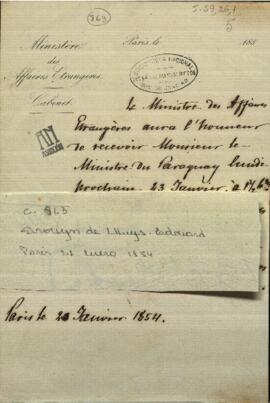 I-29,26,1
863
5
Ministère
des
Affaires Etrangères.
Cabinet.
Paris, le
185
Le Ministre des Affaires
Etrangères aura l'honneur
de recevoir Monsieur le
Ministre du Paraguay lundi
prochain 23 Janvier à
C. 863
Drouyn de Lhuys
Paris 21 enero 1854
Paris le Janvier 1854.